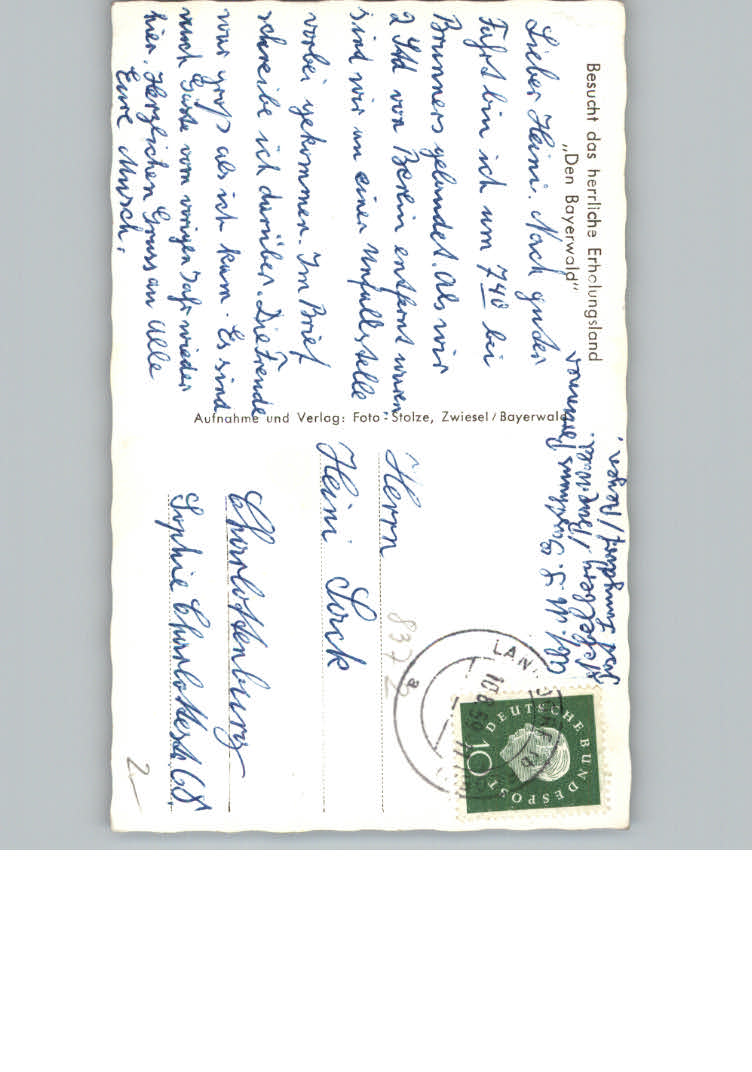 Besucht das herrliche Erholungsland
„Den Bayerwald"
Lieber Heini. Nach guter
Fahrt bin ich um 7 40 bei
Brunners gelandet. Als wir
2 Std von Berlin entfernt waren
sind wir an einer Unfallstelle
vorbei gekommen. Im Brief
schreibe ich darüber. Die Freude
war groß als ich kam. Es sind
auch Gäste vom vorigen Jahr wieder
hier. Herzlichen Gruss an Alle
Eure Musch.
Aufnahme und Verlag: Foto-Stolze, Zwiesel/Bayerwald
Post
Herrn
Heini Sack
Charlottenburg
Sophie Charlottestr. 68
837
2
a
LAN
10.8.
DEUTSCHE BUNDESPOST
10
2